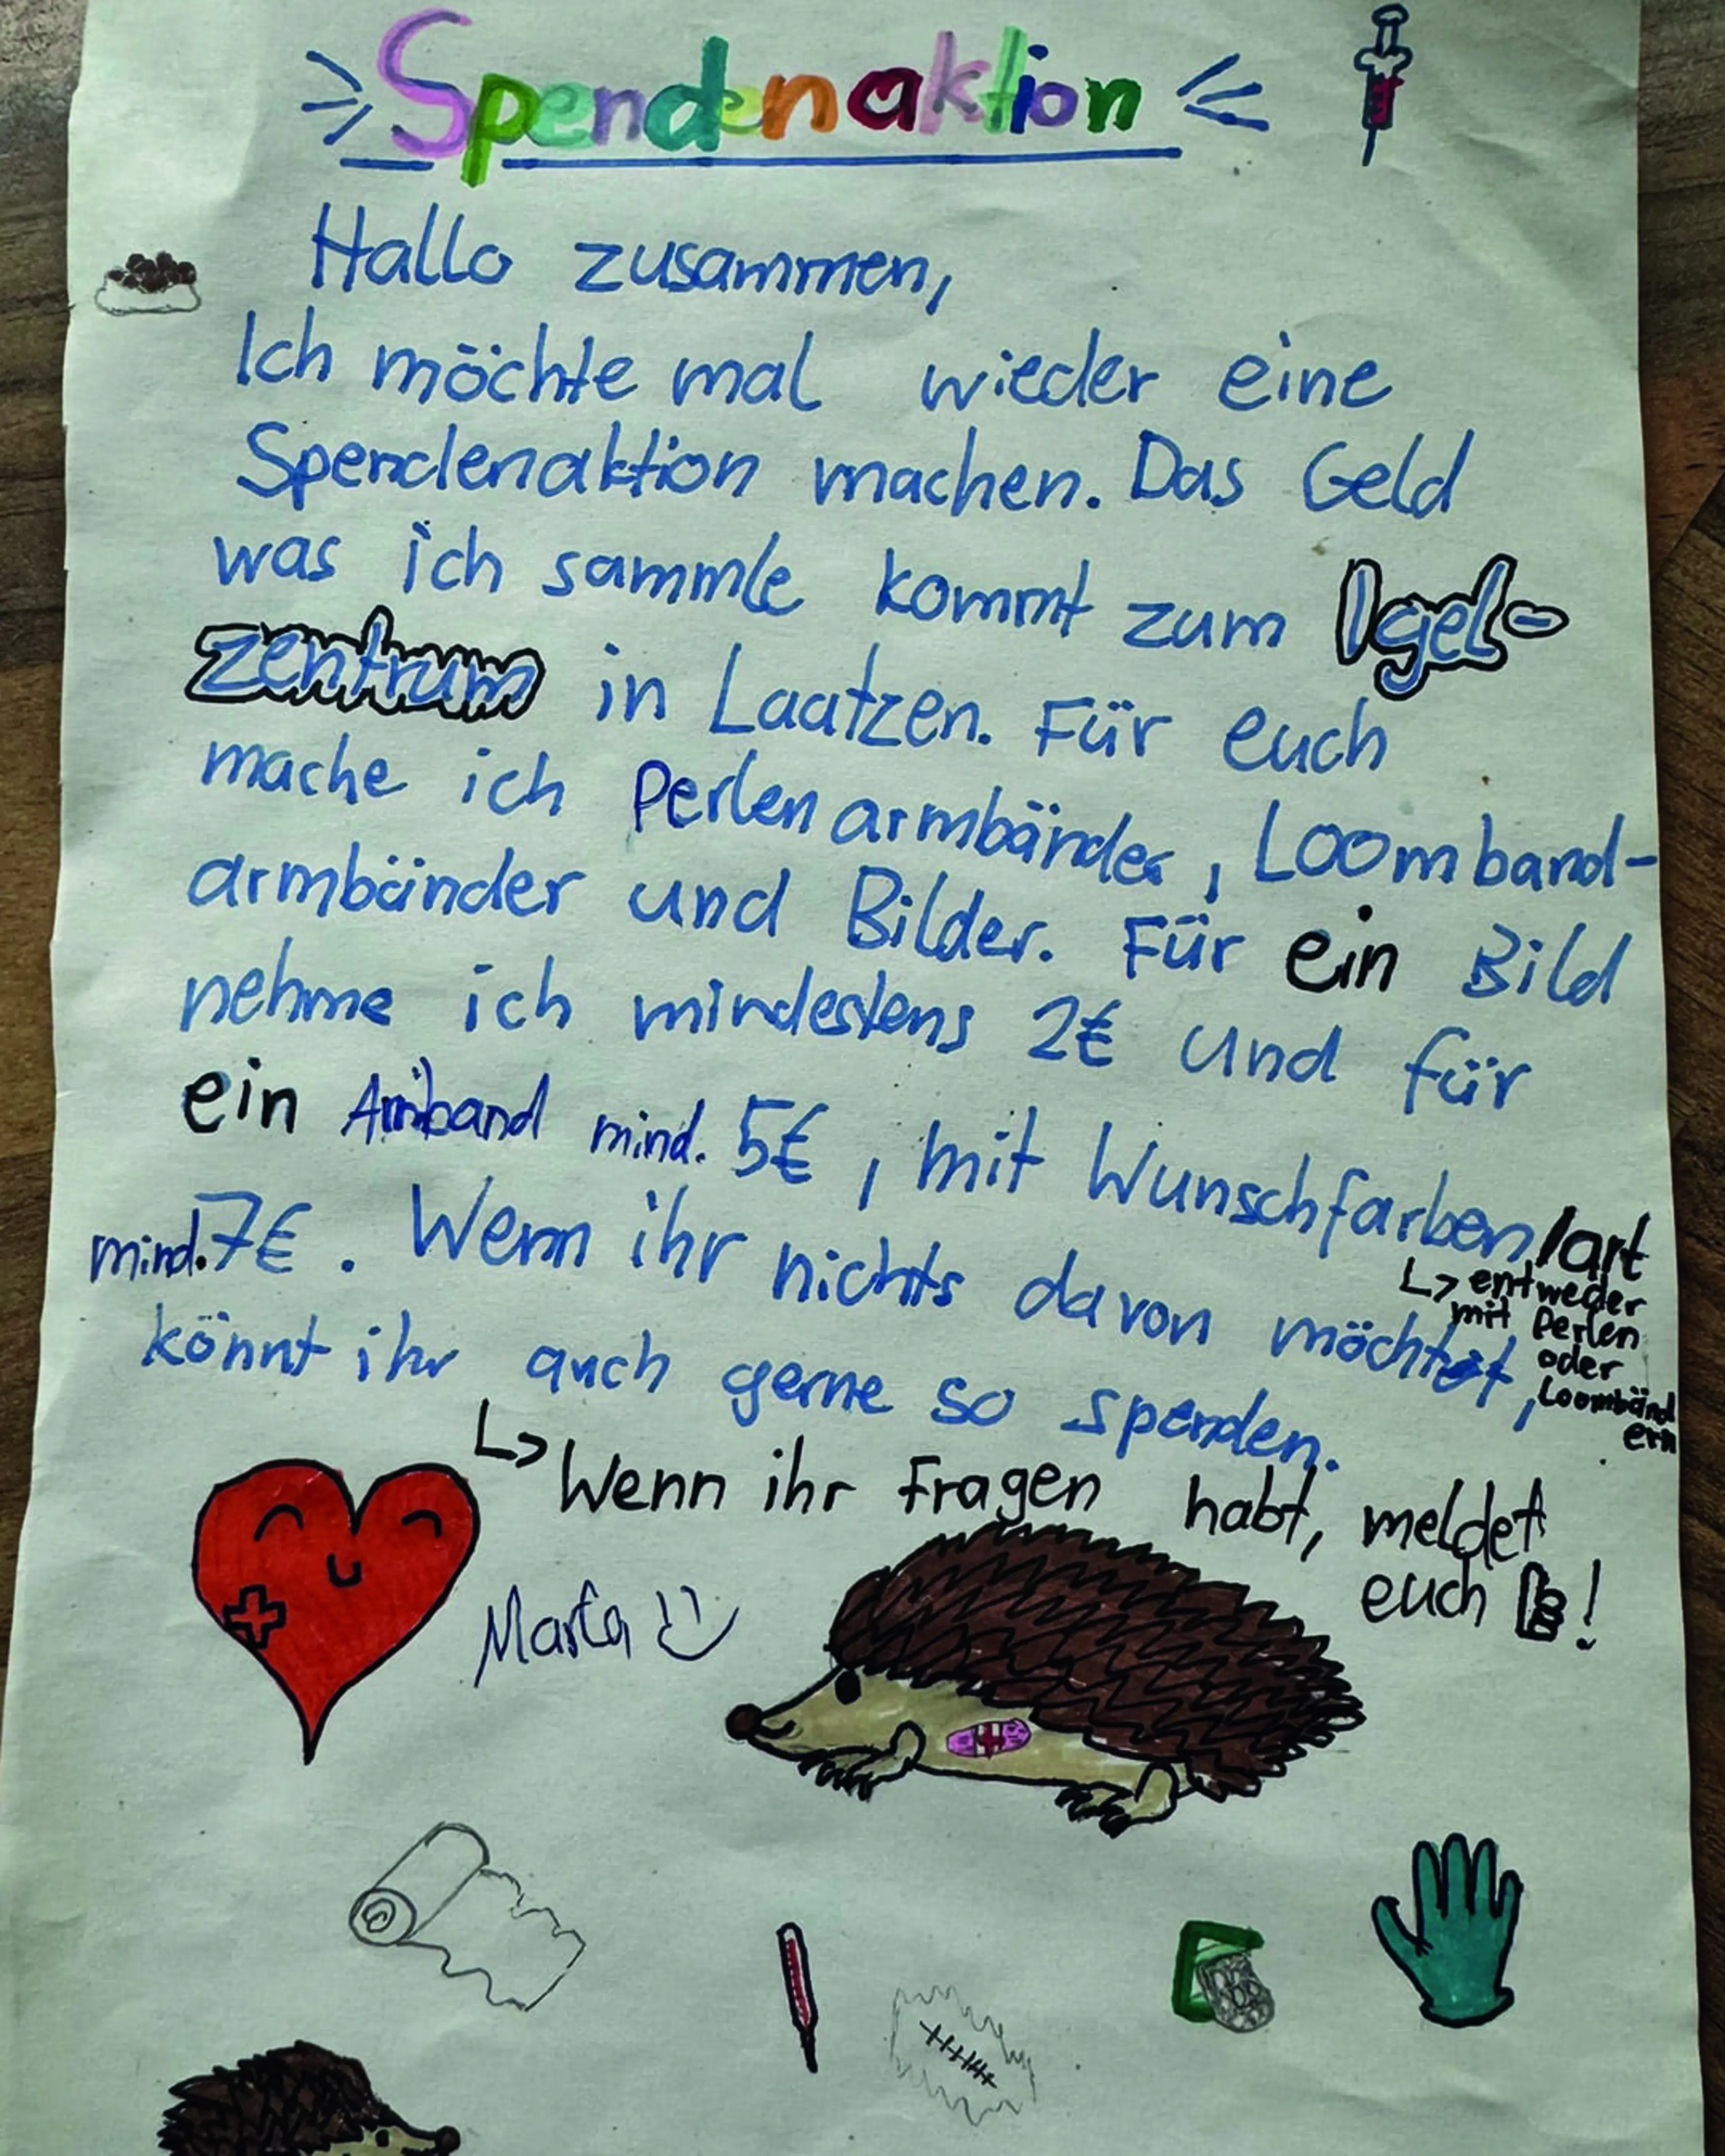 Spendenaktion
Hallo zusammen,
Ich möchte mal wieder eine
Spendenaktion machen. Das Geld
was ich sammle kommt zum Igel-
zentrum in Laatzen. Für euch
mache ich Perlenarmbänder, Loomband-
armbänder und Bilder. Für ein Bild
nehme ich mindestens 2€ und für
ein Armband mind. 5€, mit Wunschfarben/art
↳ entweder
mit Perlen
oder
Loombänd
ern
mind. 7€. Wenn ihr nichts davon möchtet,
könnt ihr auch gerne so spenden.
↳ Wenn ihr Fragen habt, meldet
euch 👍!
Marta